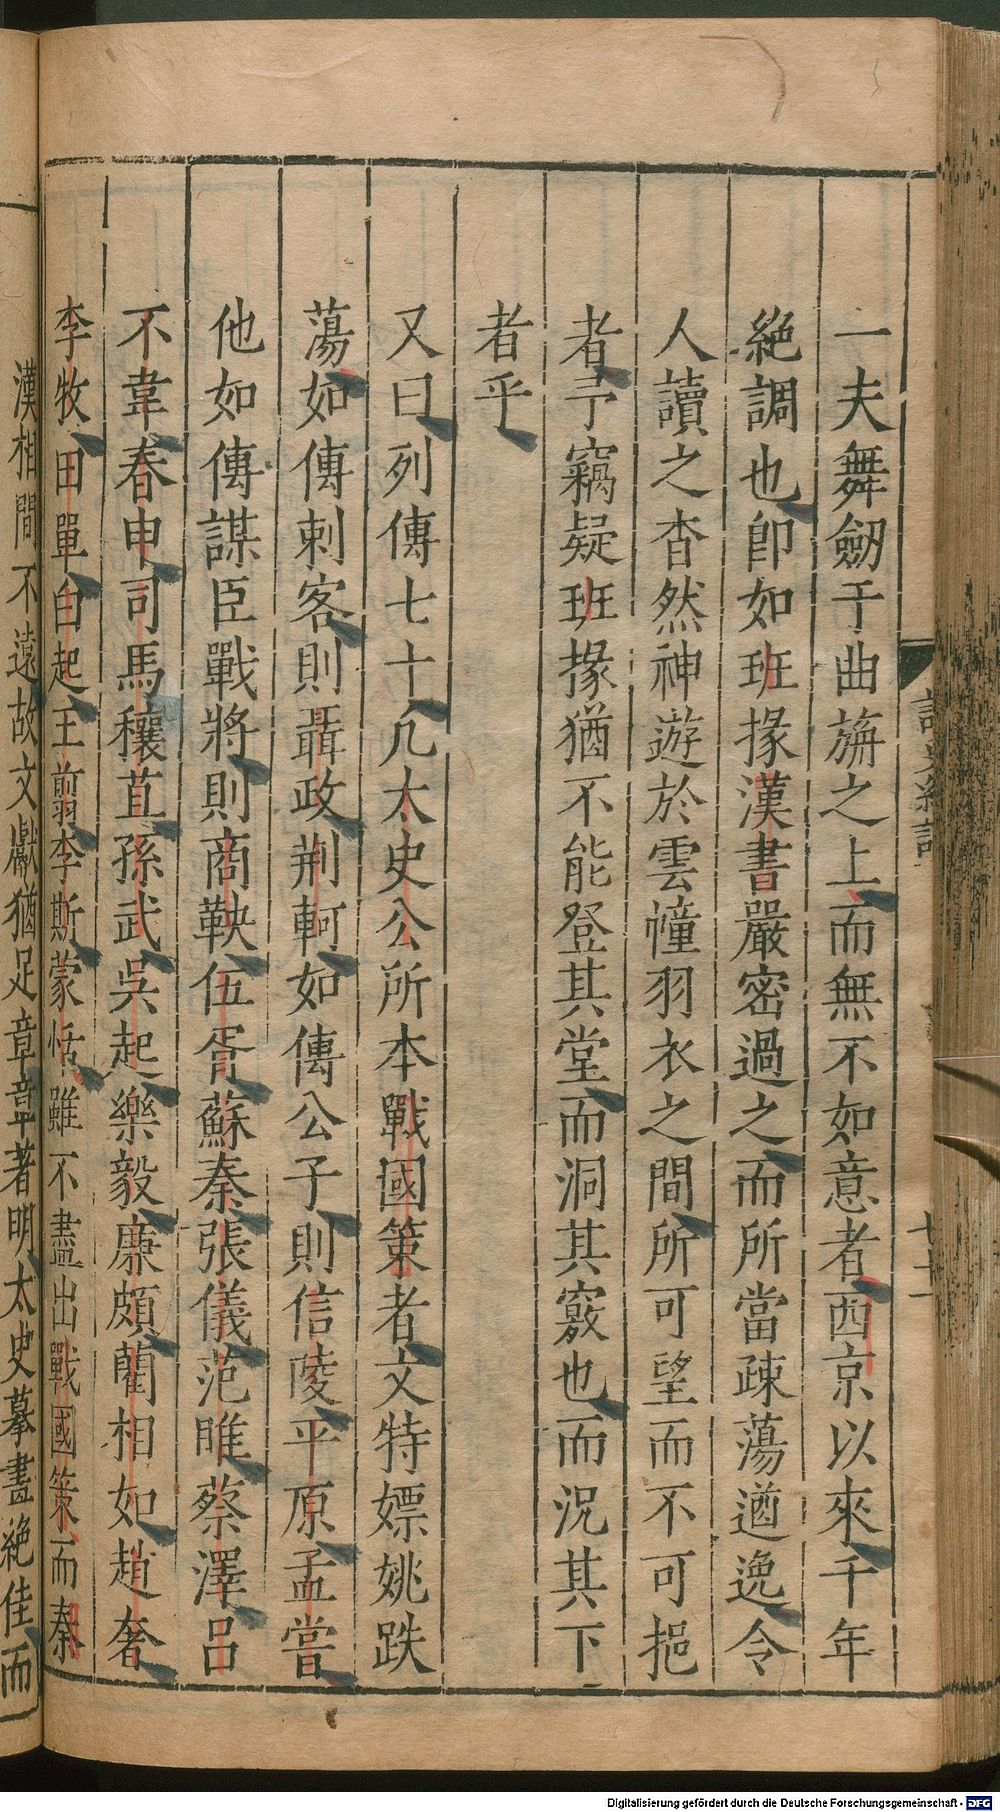 一夫舞劒于曲旃之上而無不如意者西京以來千年
絕調也卽如班掾漢書嚴密過之而所當疎蕩遒逸令
人讀之杳然神遊於雲幢羽衣之間所可望而不可挹
者予竊疑班掾猶不能登其堂而洞其竅也而況其下
者乎
又曰列傳七十凡太史公所本戰國策者文特嫖姚跌
蕩如傳刺客則聶政荆軻如傳公子則信陵平原孟嘗
他如傳謀臣戰將則商鞅伍胥蘇秦張儀范睢蔡澤呂
不韋春申司馬穰苴孫武吳起樂毅廉頗藺相如趙奢
李牧田單白起王翦李斯蒙恬雖不盡出戰國策而秦
漢相間不遠故文獻猶足章章著明太史摹畫絕佳而
七二
Digitalisierung gefördert durch die Deutsche Forschungsgemeinschaft - DFG